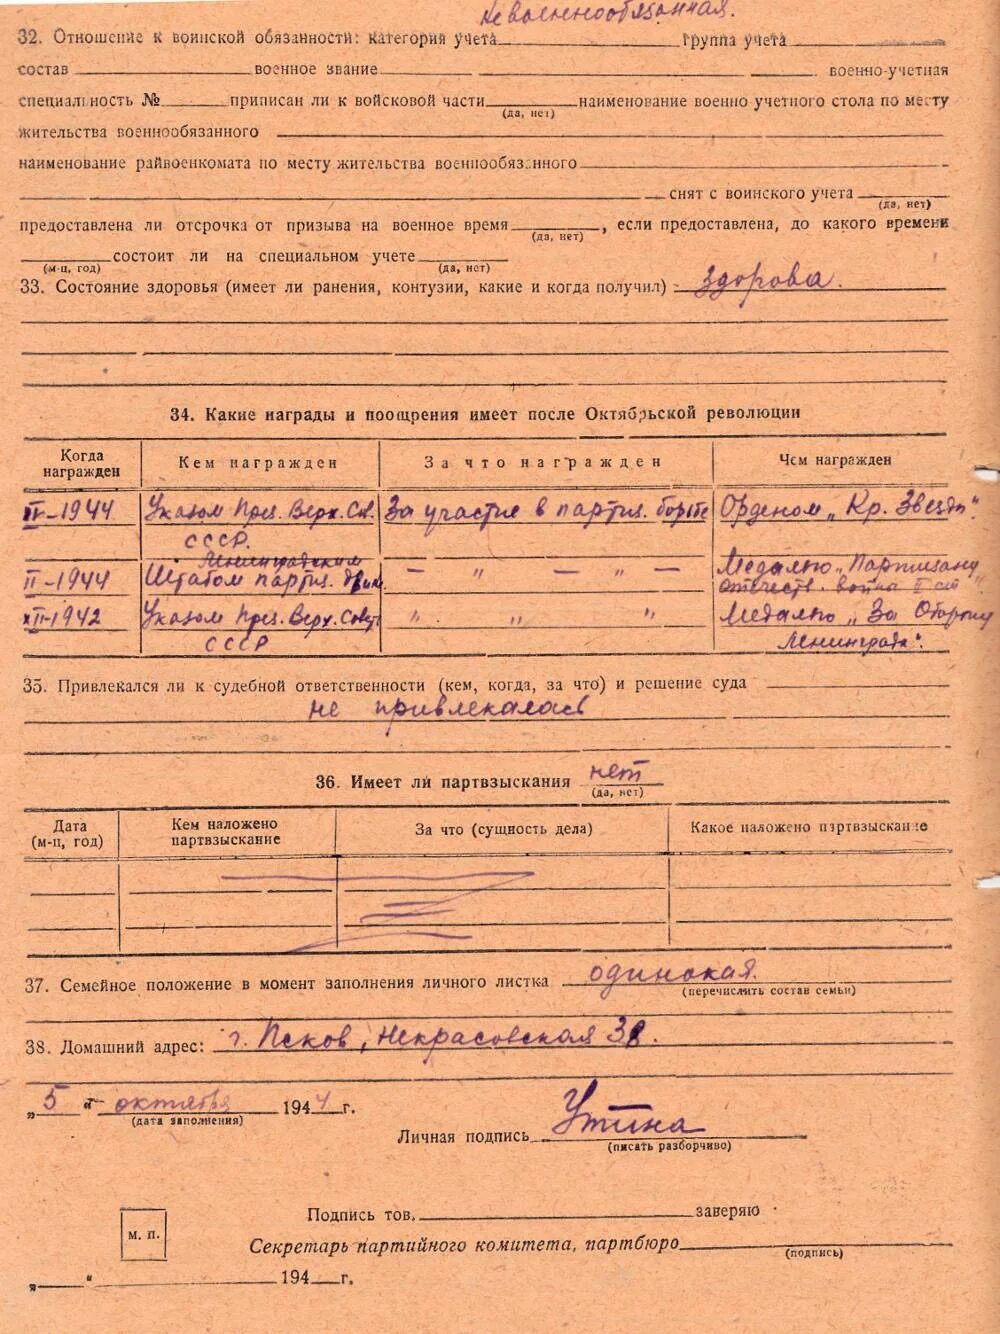 Невоеннообязанная.
32. Отношение к воинской обязанности: категория учета группа учета
состав военное звание военно-учетная
специальность № приписан ли к войсковой части наименование военно учетного стола по месту
(да, нет)
жительства военнообязанного
наименование райвоенкомата по месту жительства военнообязанного
снят с воинского учета
(да, нет)
предоставлена ли отсрочка от призыва на военное время , если предоставлена, до какого времени
(да, нет)
состоит ли на специальном учете
(м-ц, год) (да, нет)
33. Состояние здоровья (имеет ли ранения, контузии, какие и когда получил) здорова.
34. Какие награды и поощрения имеет после Октябрьской революции
Когда награжден Кем награжден За что награжден Чем награжден
-1944 Указом През. Верх. Сов. За участие в партиз. борьбе Орденом „Кр. Звезда".
СССР.
Ленинградским Медалью „Партизану
II-1944 Штабом партиз. движ. — „ — „ — отечеств. война II ст"
XII-1942 Указом През. Верх. Совет „ „ „ Медалью „За Оборону
СССР Ленинграда".
35. Привлекался ли к судебной ответственности (кем, когда, за что) и решение суда
не привлекалась
36. Имеет ли партвзыскания нет
(да, нет)
Дата (м-ц, год) Кем наложено партвзыскание За что (сущность дела) Какое наложено партвзыскание
37. Семейное положение в момент заполнения личного листка одинокая.
(перечислить состав семьи)
38. Домашний адрес: г. Псков, Некрасовская 38.
„5" октября 1944 г.
(дата заполнения)
Личная подпись Утина
(писать разборчиво)
Подпись тов. заверяю
м. п.
Секретарь партийного комитета, партбюро
(подпись)
„ " 194 г.